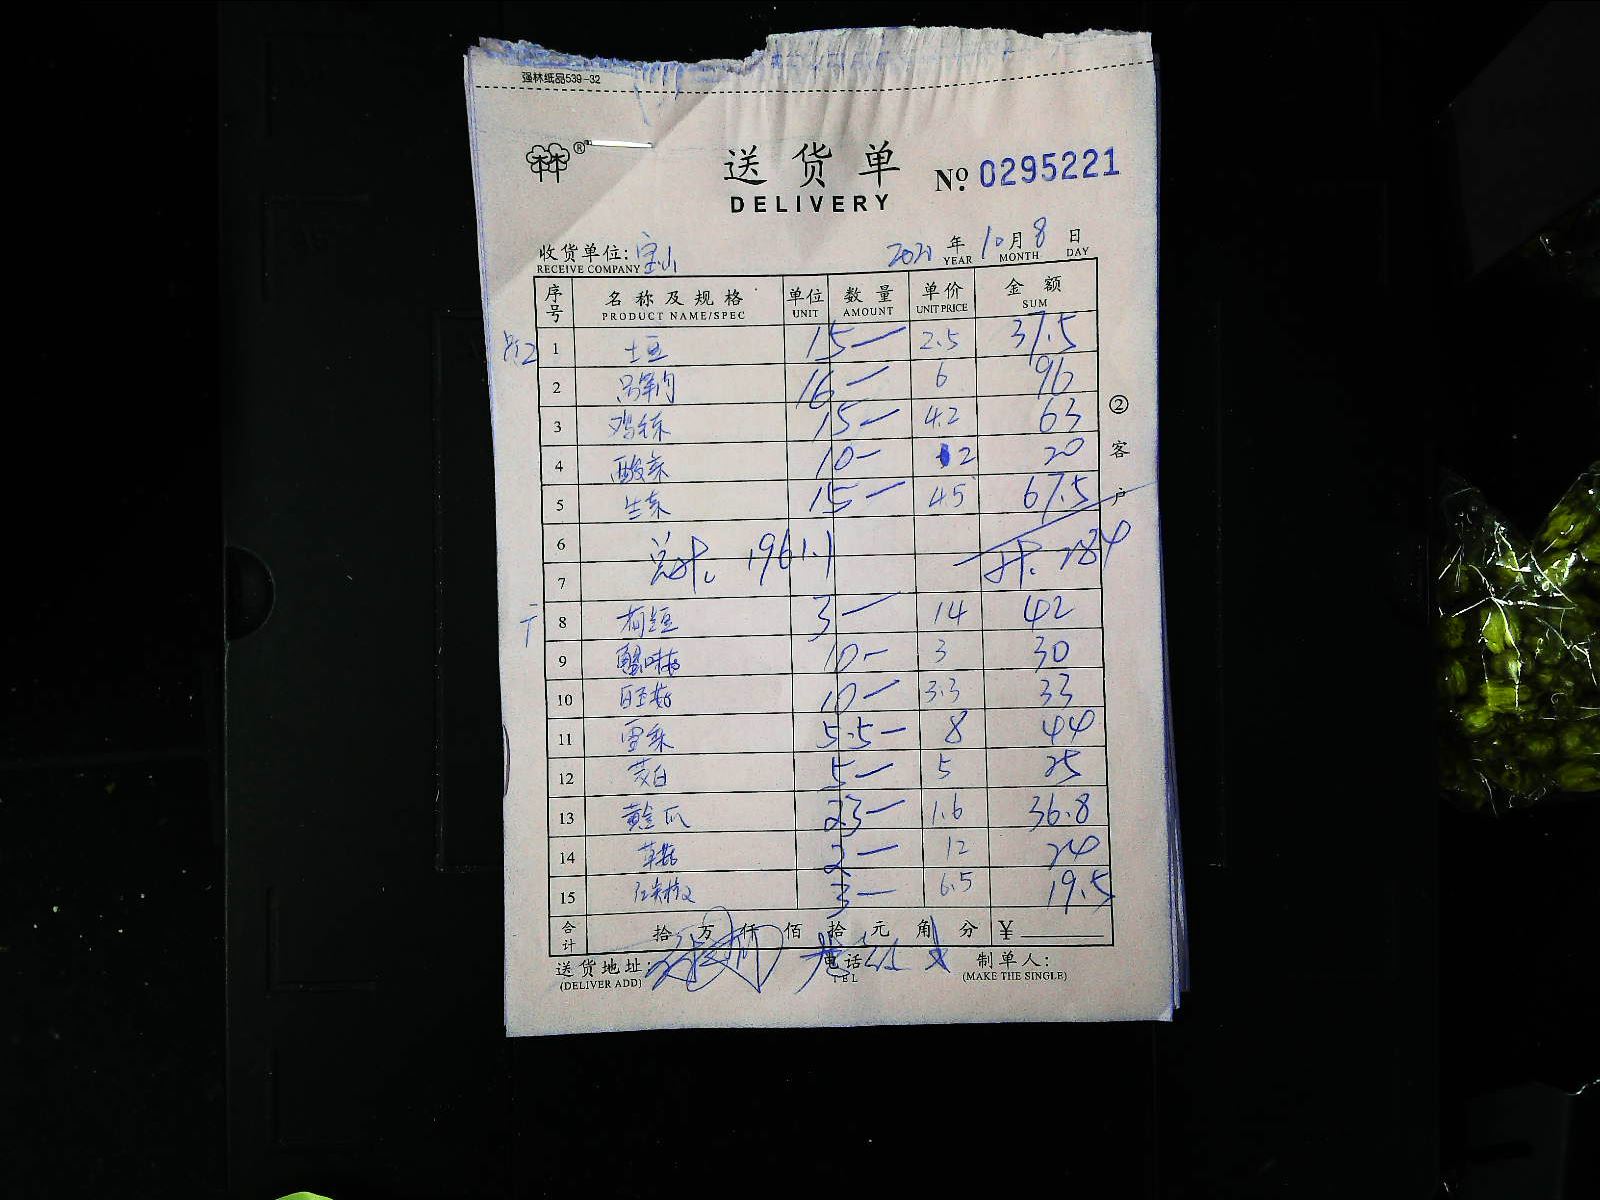 强林纸品539-32
送货单 No 0295221
DELIVERY
收货单位: 宝山 2021 年 10 月 8 日
RECEIVE COMPANY YEAR MONTH DAY
序号 名称及规格 单位 数量 单价 金额
PRODUCT NAME/SPEC UNIT AMOUNT UNIT PRICE SUM
1 土豆 15 — 2.5 37.5
2 16 — 6 96
3 15 — 4.2 63
4 酸菜 10 — 2 20
5 生菜 15 — 4.5 67.5
6
总计. 1961.1 计. 284
7
8 3 — 14 42
9 蟹味菇 10 — 3 30
10 10 — 3.3 33
11 雪菜 5.5 — 8 44
12 茭白 5 — 5 25
13 黄金瓜 23 — 1.6 36.8
14 草菇 2 — 12 24
15 红尖椒 3 — 6.5 19.5
合计 拾 万 仟 佰 拾 元 角 分 ¥
送货地址: 电话 制单人:
(DELIVER ADD) TEL (MAKE THE SINGLE)
② 客户